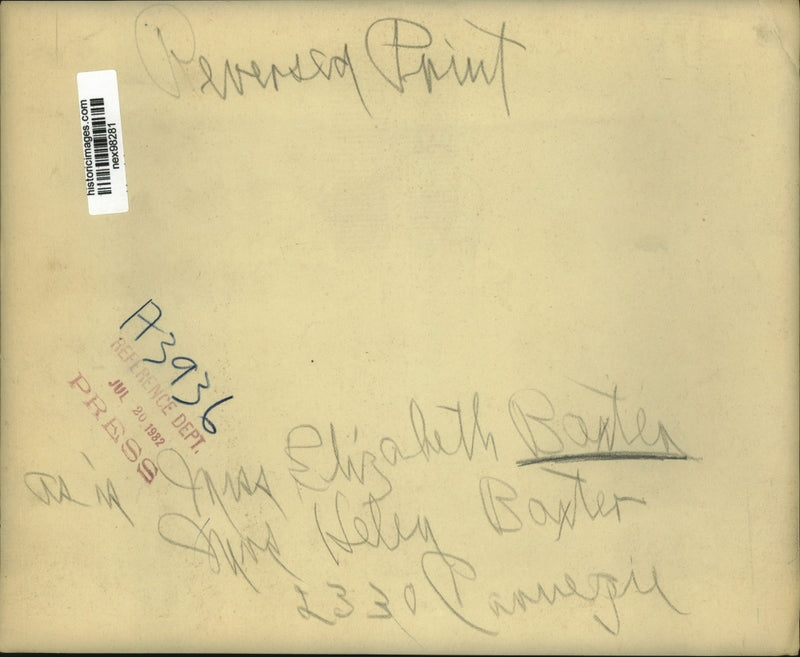 Reversed Print
historicimages.com
nex98281
A3936
REFERENCE DEPT.
JUL 20 1982
PRESS
as is Miss Elizabeth Baxter
Mrs Baxter
2330 Carnegie